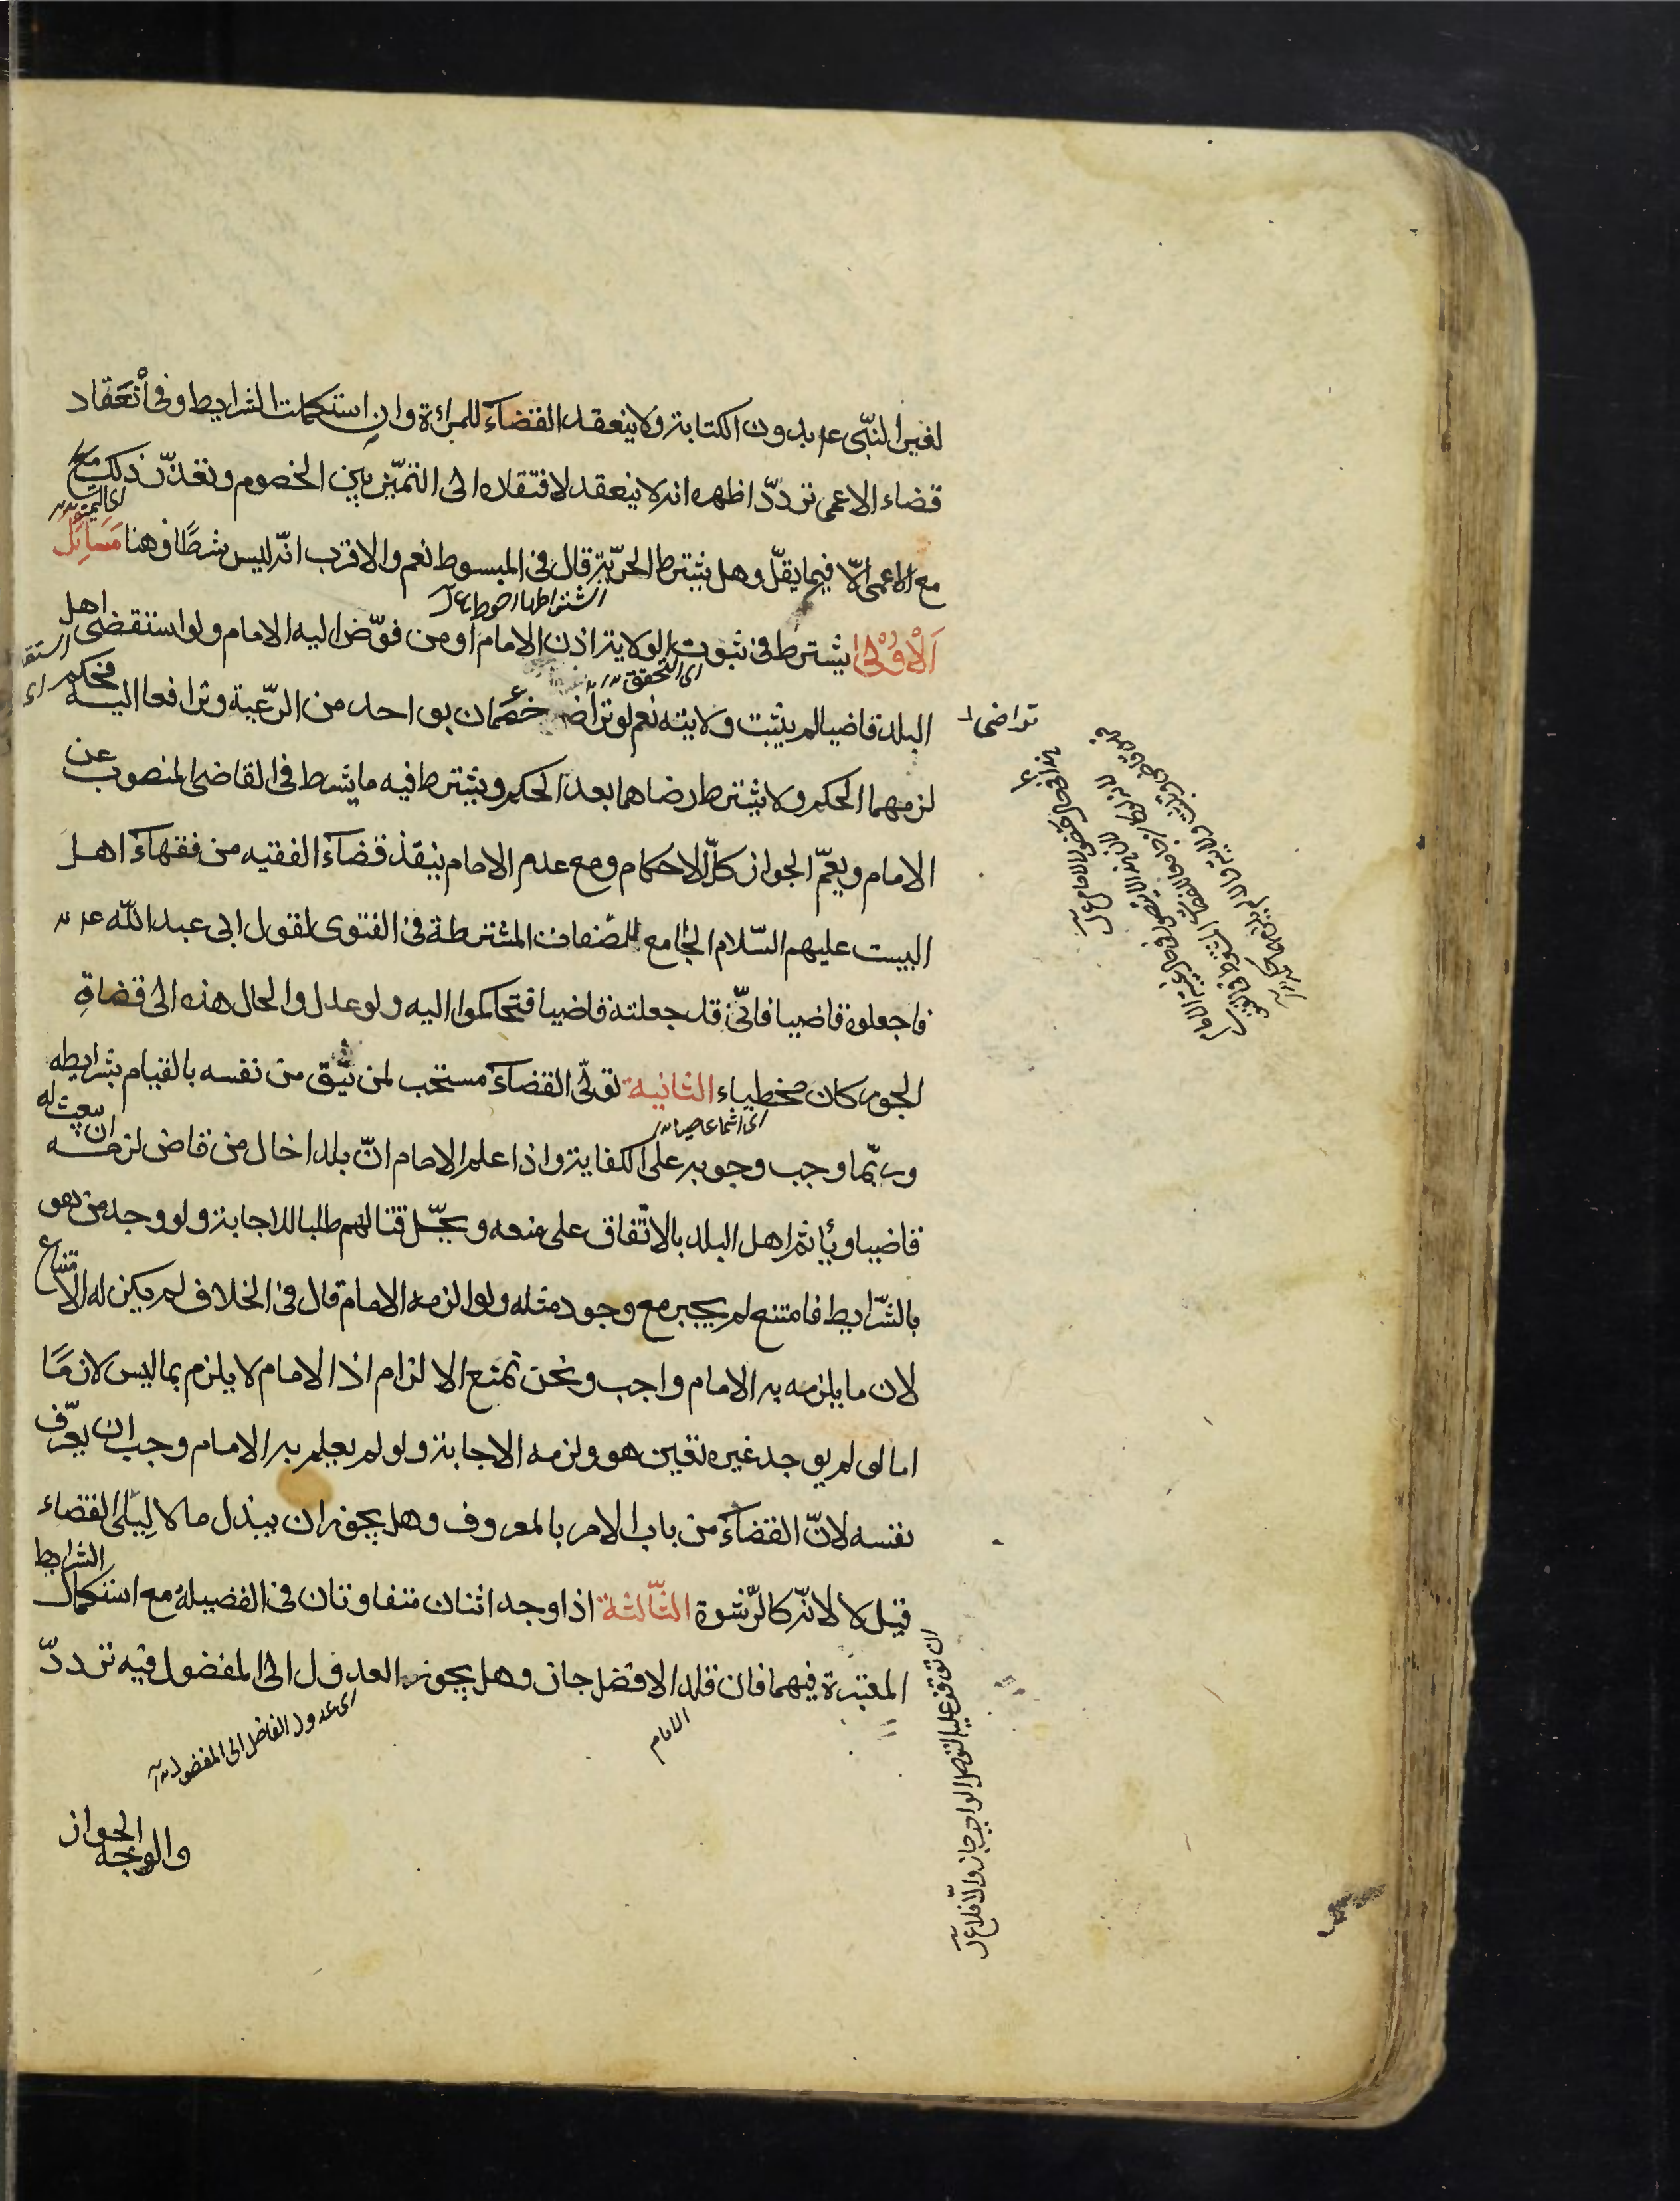 لغير النبّى عم بدون الكتابة ولا ينعقد القضآء للمراءة وان استكملت الشرايط وفى اْنعَقاد
قضاء الاعمى تردّد اظهره انه لا ينعقد لافتقاره الى التمّيز بين الخصوم وتعذّر ذلك مع
اى التميز
مع الاعمى الّا فيما يقلّ وهل يشترط الحرّية قال فى المبسوط نعم والاقرب انّه ليس شرطًا وهنا مَسَائِل
اشتراطها احوط ع ل
اَلْاُوْلٰى يشترط فى ثبوت الولاية اذن الامام او من فوّض اليه الامام ولو استقضى اهل
اى التحقق
البلد قاضيا لم يثبت ولايته نعم لو تراضا خصمان بواحد من الرّعية وترافعا اليه فحكم
تراضى
لزمهما الحكم ولا يشترط رضاهما بعد الحكم ويشترط فيه ما يشترط فى القاضى المنصوب عن
الامام ويعمّ الجواز كلّ الاحكام ومع عدم الامام ينفذ قضآء الفقيه من فقهآء اهل
البيت عليهم السّلام الجامع للصّفات المشترطة فى الفتوى لقول ابى عبد اللّه عم
فاجعلوه قاضيا فانّى قد جعلته قاضيا فتحاكموا اليه ولو عدل والحال هذه الى قضاةِ
الجور كان مخطياء الثانية تولّى القضآء مستحب لمن يثق من نفسه بالقيام بشرايطه
وربّما وجب ووجوبه على الكفاية واذا علم الامام انّ بلدا خال من قاض لزمه ان يبعث له
قاضيا ويأثم اهل البلد بالاتّفاق على منعه ويحلّ قتالهم طلبا للاجابة ولو وجد من هو
بالشّرايط فامتنع لم يجبر مع وجود مثله ولو الزمه الامام قال فى الخلاف لم يكن له الامتناع
لان ما يلزمه به الامام واجب ونحن نمنع الالزام اذ الامام لا يلزم بما ليس لازمًا
اما لو لم يوجد غيره تعين هو ولزمه الاجابة ولو لم يعلم به الامام وجب ان يعرّف
نفسه لانّ القضآء من باب الامر بالمعروف وهل يجوز ان يبذل مالا لِيَلى القضاء
قيل لا لانّه كالرّشوة الثّالثة اذا وجد اثنان متفاوتان فى الفضيلة مع استكمال الشرايط
المعتبرة فيهما فان قلد الافضل جاز وهل يجوز العدول الى المفضول فيه تردّد
الامام
اى عدول الفاضل الى المفضول
ان توقف عليه التوصل الواجب جاز والّا فلا ع ل
والوجه الجواز